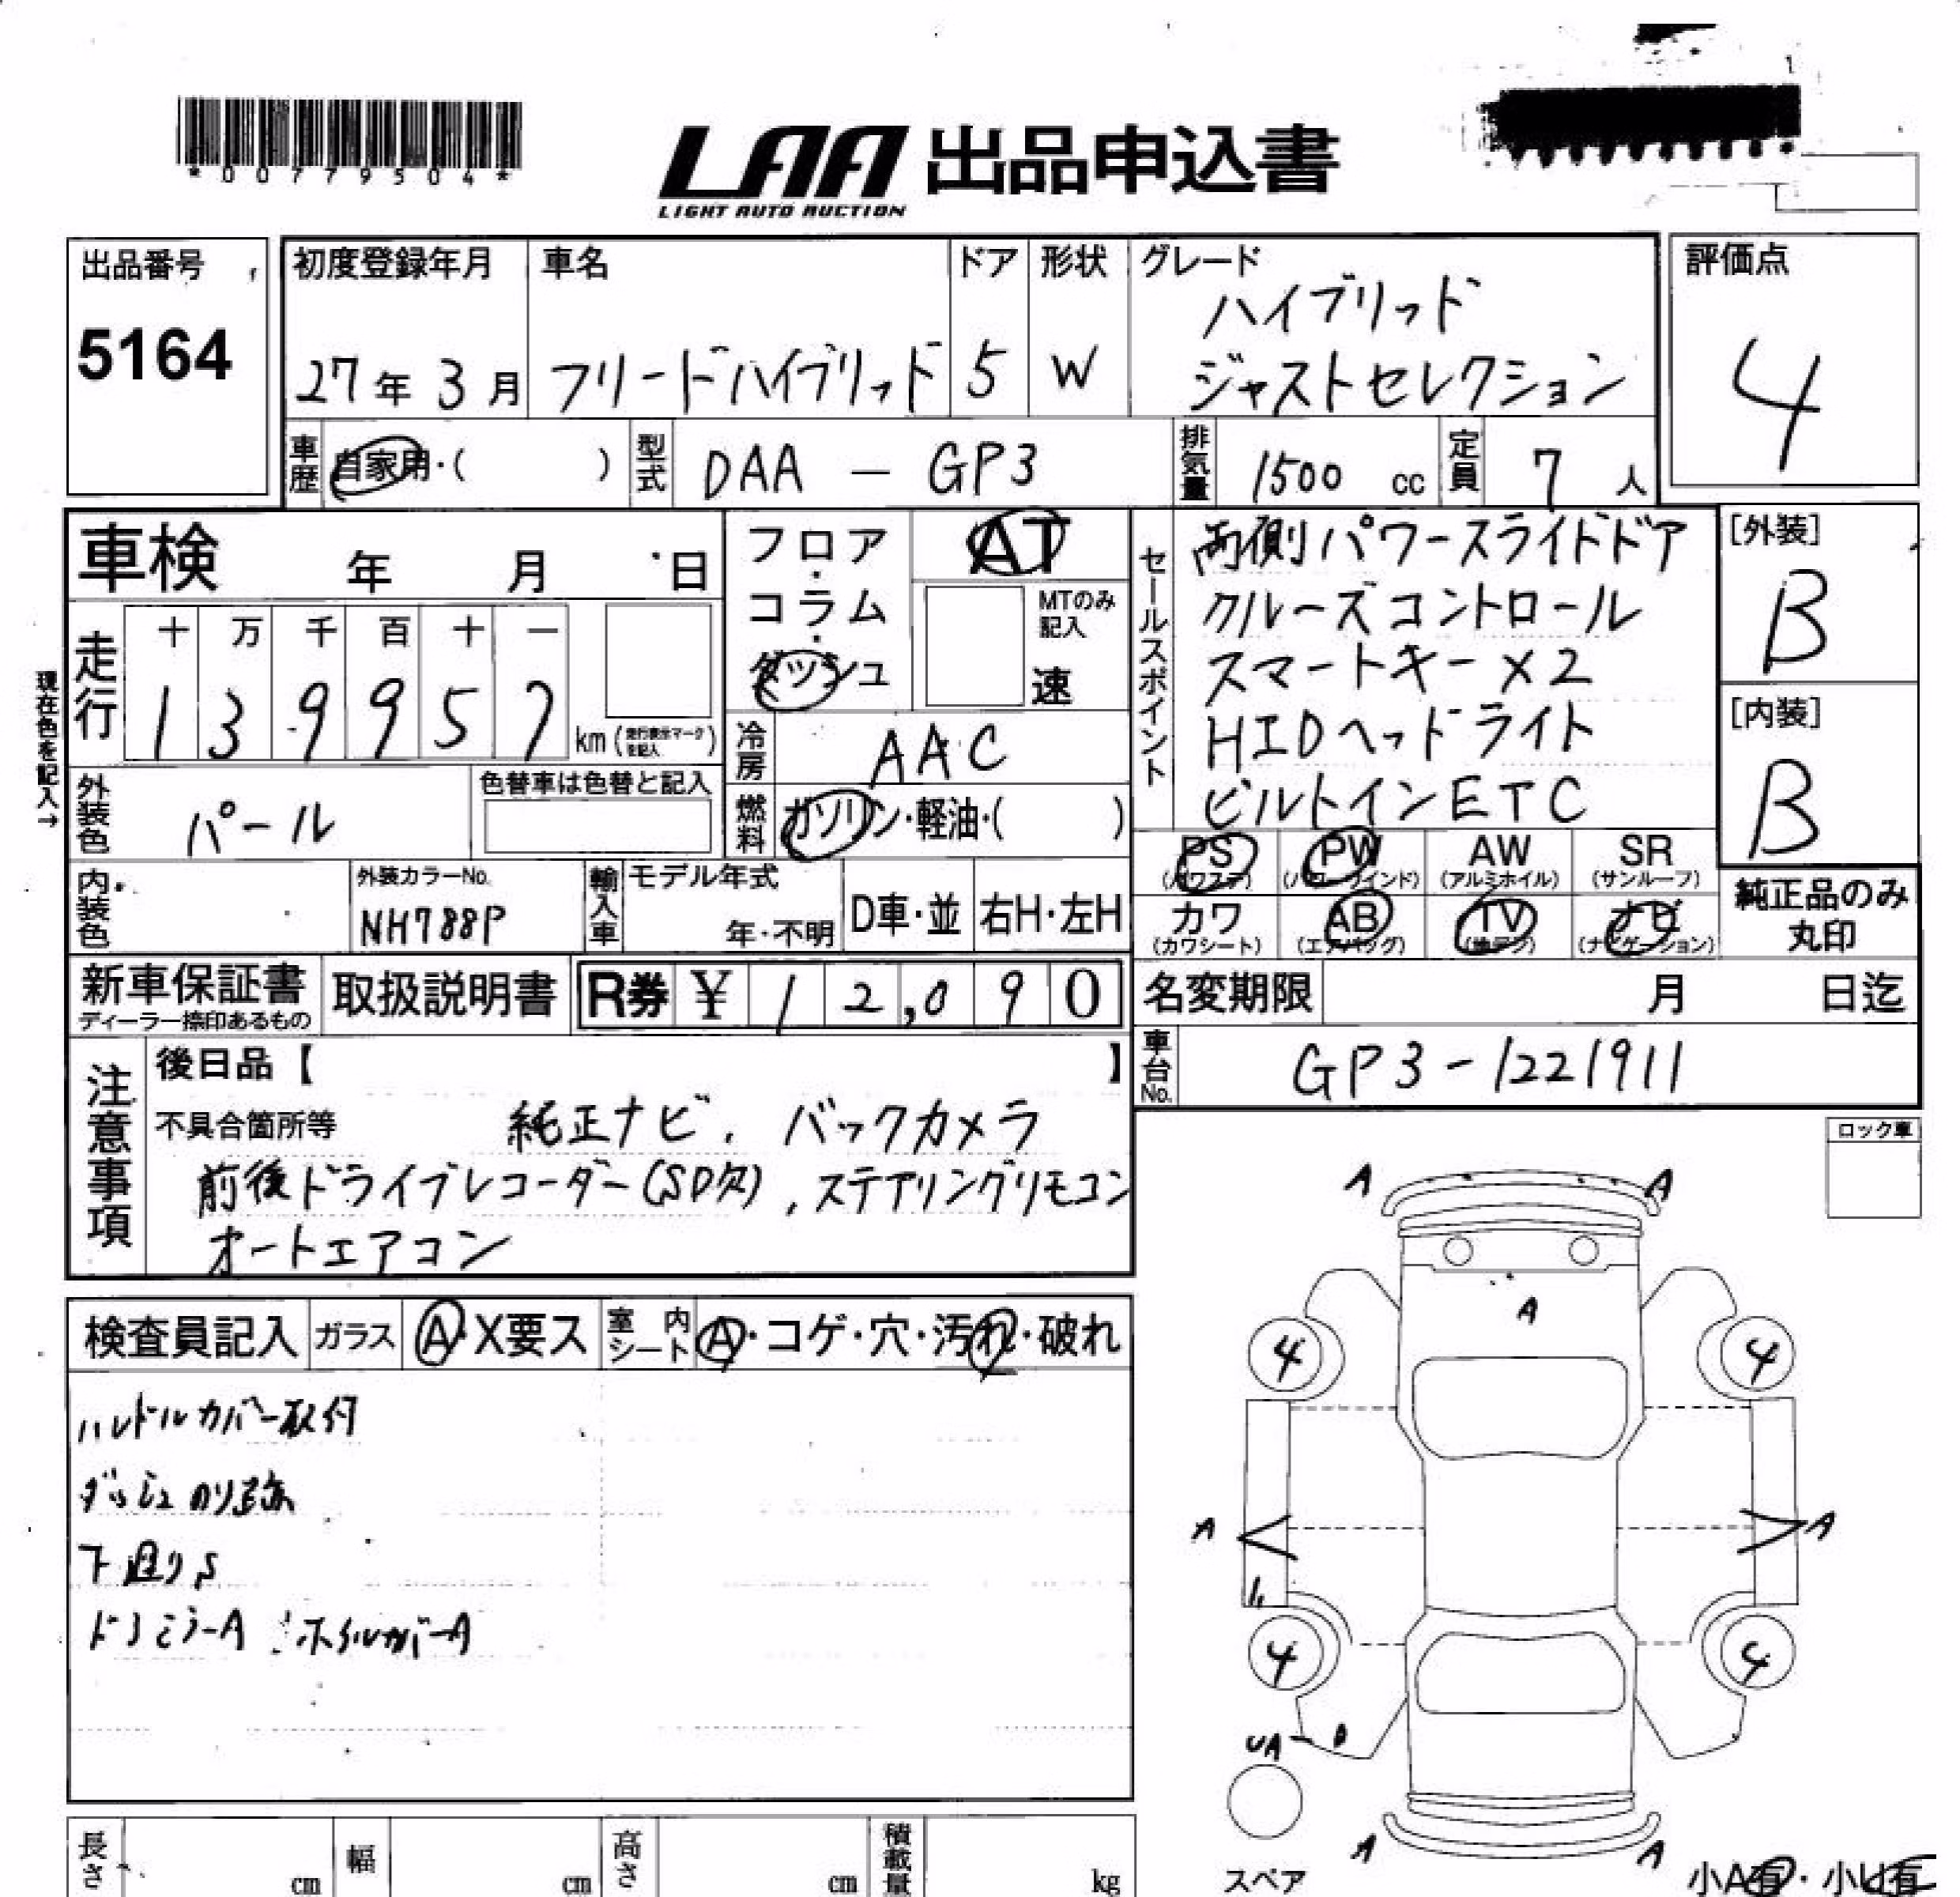 *00779504*
LAA 出品申込書
LIGHT AUTO AUCTION
出品番号
5164
初度登録年月
27年3月
車名
フリードハイブリッド
ドア
5
形状
W
グレード
ハイブリッド
ジャストセレクション
評価点
4
車歴
自家用・( )
型式
DAA - GP3
排気量
1500 cc
定員
7 人
車検 年 月 日
走行
十 万 千 百 十 一
1 3 9 9 5 7 km(走行表示マークを記入)
現在色を記入→
フロア・コラム・ダッシュ
AT
MTのみ記入
速
冷房
AAC
燃料
ガソリン・軽油・( )
セールスポイント
両側パワースライドドア
クルーズコントロール
スマートキー×2
HIDヘッドライト
ビルトインETC
[外装]
B
[内装]
B
外装色
パール
色替車は色替と記入
内装色
外装カラーNo.
NH788P
輸入車
モデル年式
年・不明
D車・並
右H・左H
PS (パワステ)
PW (パワーウインド)
AW (アルミホイル)
SR (サンルーフ)
カワ (カワシート)
AB (エアバッグ)
TV (地デジ)
ナビ (ナビゲーション)
純正品のみ丸印
新車保証書
ディーラー捺印あるもの
取扱説明書
R券 ¥ 12,090
名変期限 月 日迄
車台No.
GP3-1221911
注意事項
後日品【 】
不具合箇所等
純正ナビ、バックカメラ
前後ドライブレコーダー(SD欠)、ステアリングリモコン
オートエアコン
ロック車
検査員記入
ガラス
A・X要ス
室内シート
A・コゲ・穴・汚れ・破れ
ハンドルカバー取付
ダッシュ のり跡
下廻りS
ドアミラーA ホイルカバーA
A A
A
4 4
A A
4 4
UA
A A
スペア
小A有・小U有
長さ cm
幅 cm
高さ cm
積載量 kg